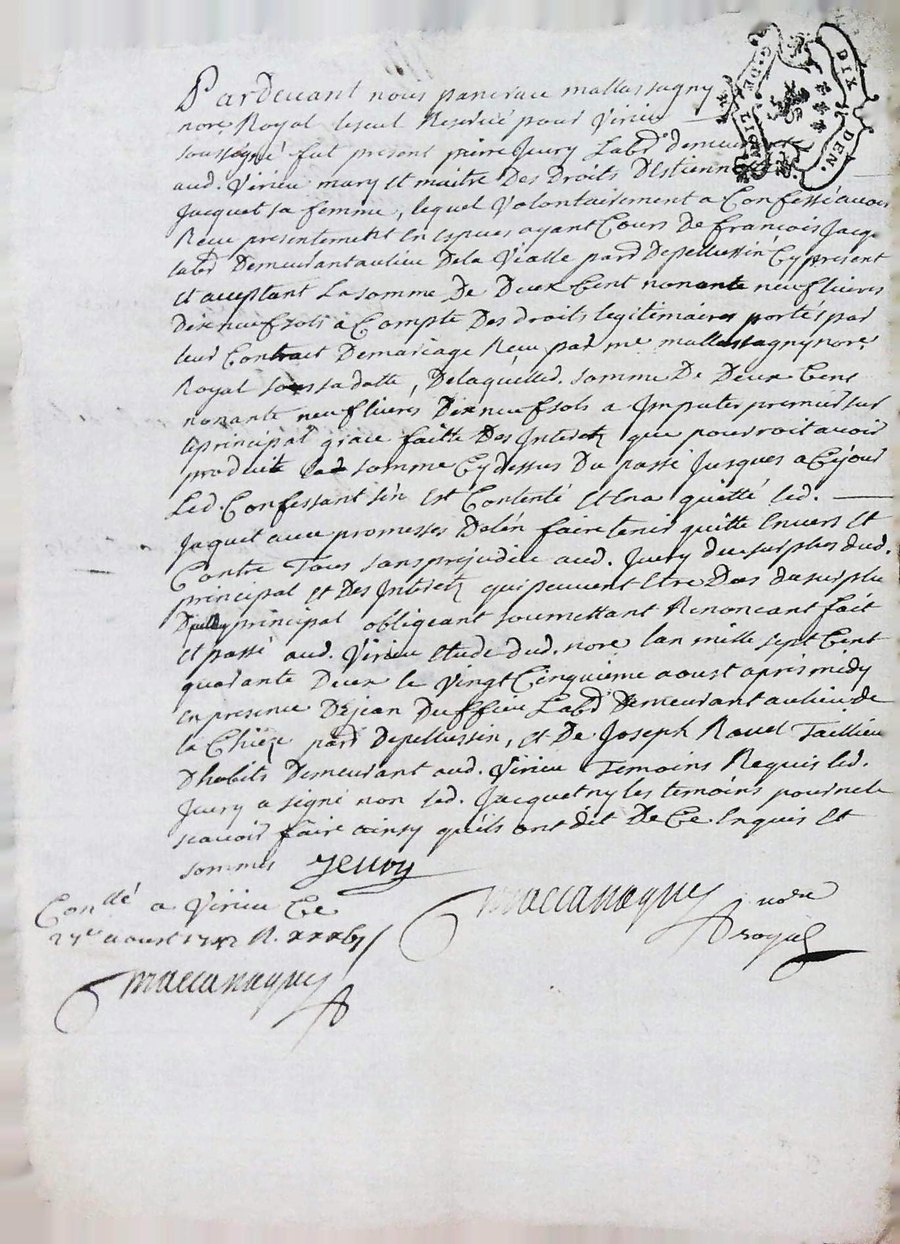 Pardevant nous pancrace mallassagny
nore Royal le seul Reservé pour Virieu
soussigné fut present pierre Jury Labd demeurant
aud. Virieu mary et maitre Des Droits D'Estienne
Jacquet sa femme, lequel Volontairement a Confessé avoir
Receu presentement en especes ayant Cours de francois Jacq
labd Demeurant au lieu De la Vialle parr Depellussin Cy present
et acceptant La somme De Deux Cent nonante neuf livres
Dix neuf sols a Compte Des droits legitimaires portés par
leur Contract De mariage Receu par me mallassagny nore
Royal sous sa datte, De laquelle d. somme De Deux Cent
nonante neuf livres Dix neuf sols a Imputer premier sur
le principal grace faitte Des Interets que pourroit avoir
produit lad somme Cy dessus Du passé Jusques a Ce jour
Led. Confessant s'en Est Contenté Et En a quitté led.
Jaquet avec promesses De l'en faire tenir quitte Envers Et
Contre Tous sans prejudice aud. Jury Du surplus dud.
principal et Des Interets qui peuvent Etre Dus du surplu
principal obligeant soumettant Renoncant fait
et passé aud. Virieu Etude Dud. nore lan mille sept Cent
quarante Deux le Vingt Cinquieme aoust apres midy
En presence De jean Duffieu Labd Demeurant au lieu de
la Chieze parr Depellussin, et De Joseph Rouet Taillieu
Dhabits Demeurant aud. Virieu Temoins Requis led.
Jury a signé non led. Jacquet ny les temoins pour ne le
scavoir faire ainsy qu'ils ont dit De Ce Enquis Et
sommes
Conllé a Virieu Ce
aoust 1742 R.
nore
royal
DIX DEN.